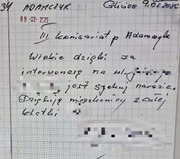 34 ADAMCZYK Gliwice 9.02.2025
09-02-2025
III komisariat p Adamczyk
Wielkie dzięki za
interwencję na ul.
jest spokój narazie.
Dziękują mieszkańcy z całej
klatki